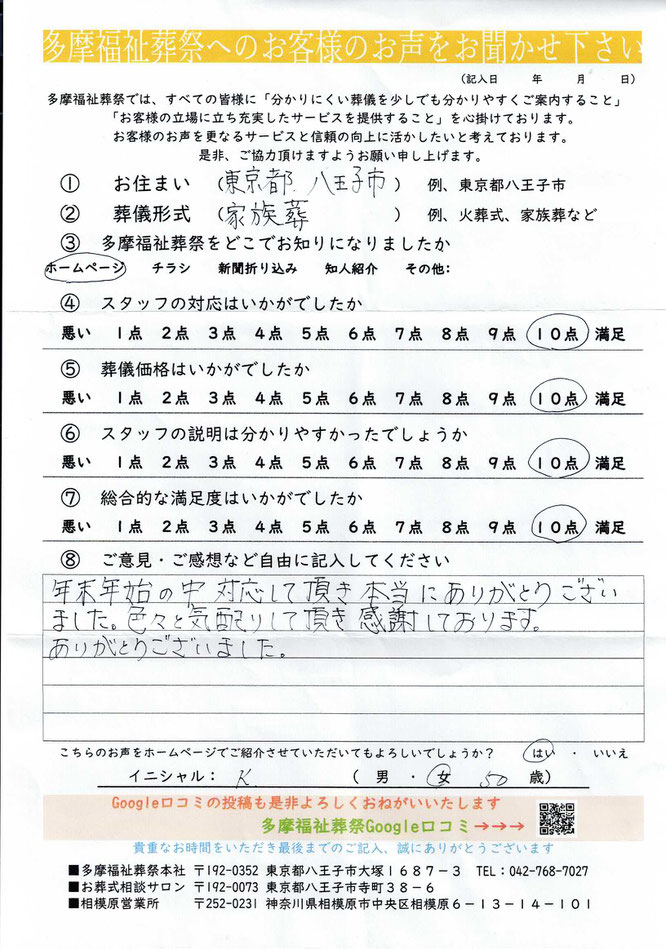 多摩福祉葬祭へのお客様のお声をお聞かせ下さい
(記入日 年 月 日)
多摩福祉葬祭では、すべての皆様に「分かりにくい葬儀を少しでも分かりやすくご案内すること」
「お客様の立場に立ち充実したサービスを提供すること」を心掛けております。
お客様のお声を更なるサービスと信頼の向上に活かしたいと考えております。
是非、ご協力頂けますようお願い申し上げます。
① お住まい (東京都 八王子市) 例、東京都八王子市
② 葬儀形式 (家族葬) 例、火葬式、家族葬など
③ 多摩福祉葬祭をどこでお知りになりましたか
ホームページ チラシ 新聞折り込み 知人紹介 その他:
④ スタッフの対応はいかがでしたか
悪い 1点 2点 3点 4点 5点 6点 7点 8点 9点 10点 満足
⑤ 葬儀価格はいかがでしたか
悪い 1点 2点 3点 4点 5点 6点 7点 8点 9点 10点 満足
⑥ スタッフの説明は分かりやすかったでしょうか
悪い 1点 2点 3点 4点 5点 6点 7点 8点 9点 10点 満足
⑦ 総合的な満足度はいかがでしたか
悪い 1点 2点 3点 4点 5点 6点 7点 8点 9点 10点 満足
⑧ ご意見・ご感想など自由に記入してください
年末年始の中 対応して頂き本当にありがとうござい
ました。色々と気配りして頂き感謝しております。
ありがとうございました。
こちらのお声をホームページでご紹介させていただいてもよろしいでしょうか? はい ・ いいえ
イニシャル: K. (男・女 50 歳)
Google口コミの投稿も是非よろしくおねがいいたします
多摩福祉葬祭Google口コミ→→→
貴重なお時間をいただき最後までのご記入、誠にありがとうございます
■多摩福祉葬祭本社 〒192-0352 東京都八王子市大塚1687-3 TEL:042-768-7027
■お葬式相談サロン 〒192-0073 東京都八王子市寺町38-6
■相模原営業所 〒252-0231 神奈川県相模原市中央区相模原6-13-14-101